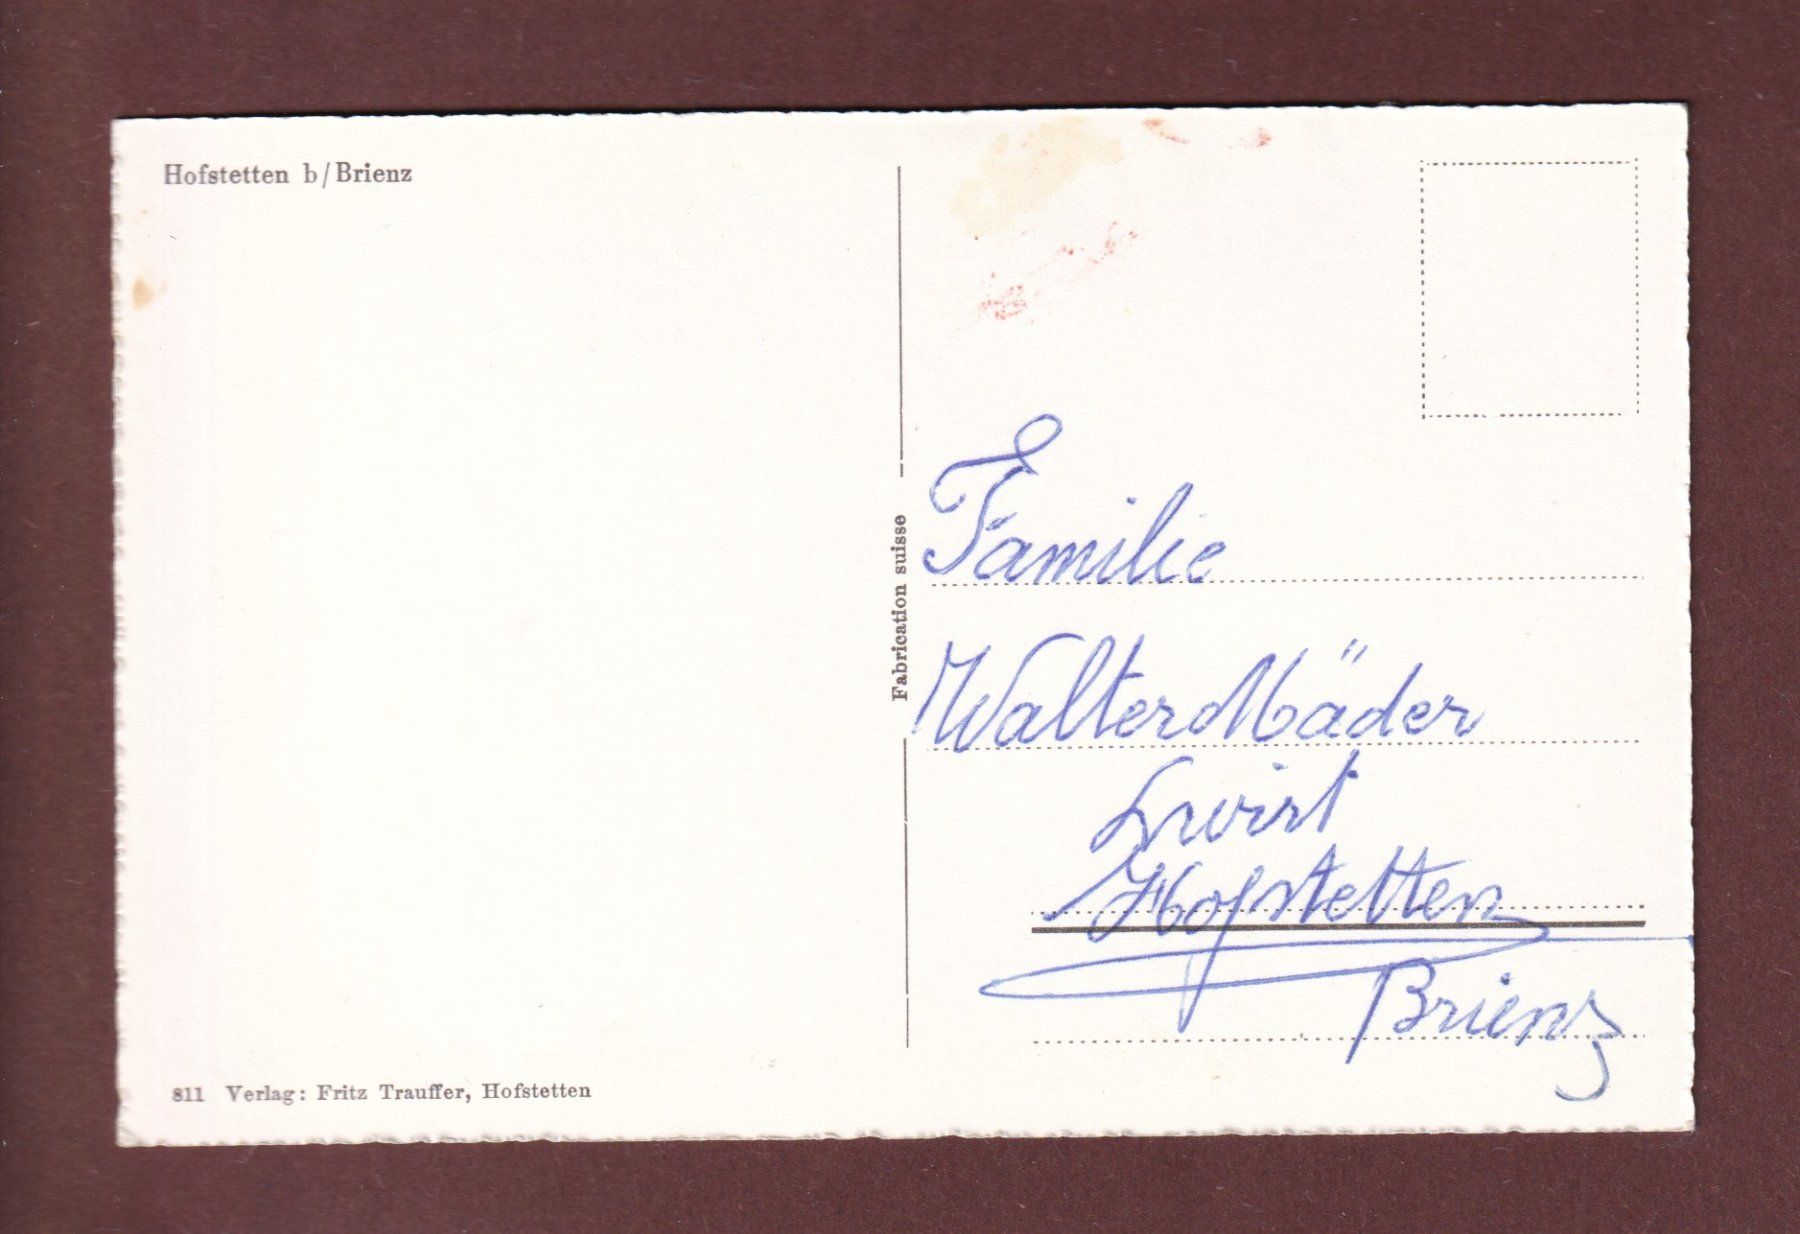 Hofstetten b/Brienz
Fabrication suisse
Familie
Walter Mäder
Hofstetten
Brienz
811 Verlag: Fritz Trauffer, Hofstetten